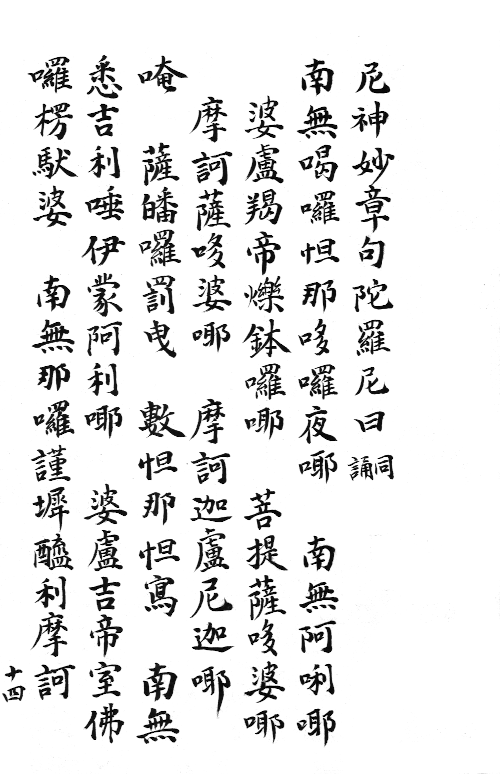 尼神妙章句陀羅尼曰 同誦
南無喝囉怛那哆囉夜㖿 南無阿唎㖿
婆盧羯帝爍鉢囉㖿 菩提薩哆婆㖿
摩訶薩哆婆㖿 摩訶迦盧尼迦㖿
唵 薩皤囉罰曳 數怛那怛寫 南無
悉吉利唾伊蒙阿利㖿 婆盧吉帝室佛
囉楞馱婆 南無那囉謹墀醯利摩訶
十四